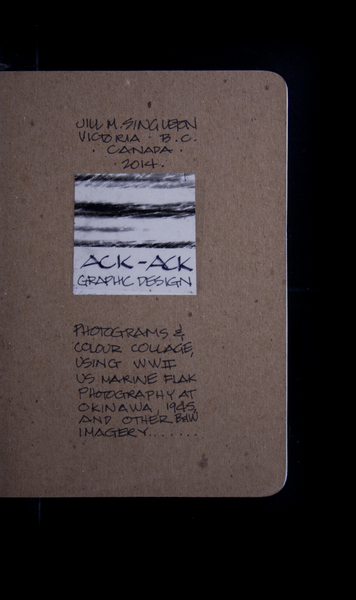 JILL M. SINGLETON
VICTORIA · B.C.
· CANADA ·
· 2014 ·
ACK-ACK
GRAPHIC DESIGN
PHOTOGRAMS &
COLOUR COLLAGE,
USING WWII
US MARINE FLAK
PHOTOGRAPHY AT
OKINAWA, 1945,
AND OTHER B&W
IMAGERY.......